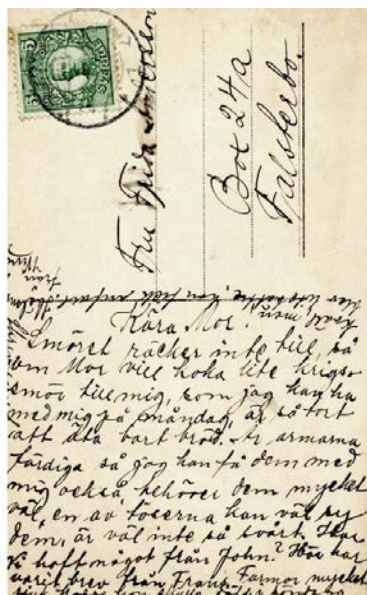 SVERIGE
Fru Frida Andersson
Box 24a
Falsterbo.
Kära Mor!
Smöret räcker inte till, så
om Mor vill koka lite krigs-
smör till mig, som jag kan ha
med mig på måndag, är så tort
att äta bart bröd. Är armarna
färdiga så jag kan få dem med
mig också, behöver dem mycket
väl, en av töserna kan väl sy
dem, är väl inte så svårt. Har
Vi haft något från John? Här har
varit brev från Frans. Farmor mycket